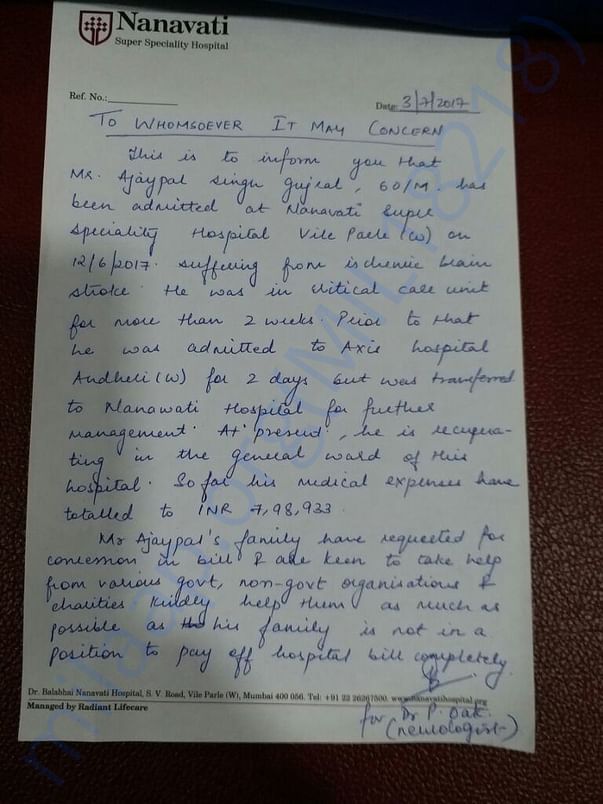 Nanavati
Super Speciality Hospital
Ref. No.:
Date: 3/7/2017
TO WHOMSOEVER IT MAY CONCERN
This is to inform you that
Mr. Ajaypal Singh Gujral, 60/M. has
been admitted at Nanavati Super
Speciality Hospital Vile Parle (W) on
12/6/2017. suffering from ischemic brain
stroke. He was in critical care unit
for more than 2 weeks. Prior to that
he was admitted to Axis hospital
Andheri (W) for 2 days but was transferred
to Nanawati Hospital for further
management. At present, he is recupera-
ting in the general ward of this
hospital. So far his medical expenses have
totalled to INR 7,98,933.
Mr Ajaypal's family have requested for
concession in bill & are keen to take help
from various govt, non-govt organisations &
charities Kindly help them as much as
possible as his family is not in a
position to pay off hospital bill completely.
Dr. Balabhai Nanavati Hospital, S. V. Road, Vile Parle (W), Mumbai 400 056. Tel: +91 22 26267500. www.nanavatihospital.org
Managed by Radiant Lifecare
for Dr P. Oak.
(neurologist)